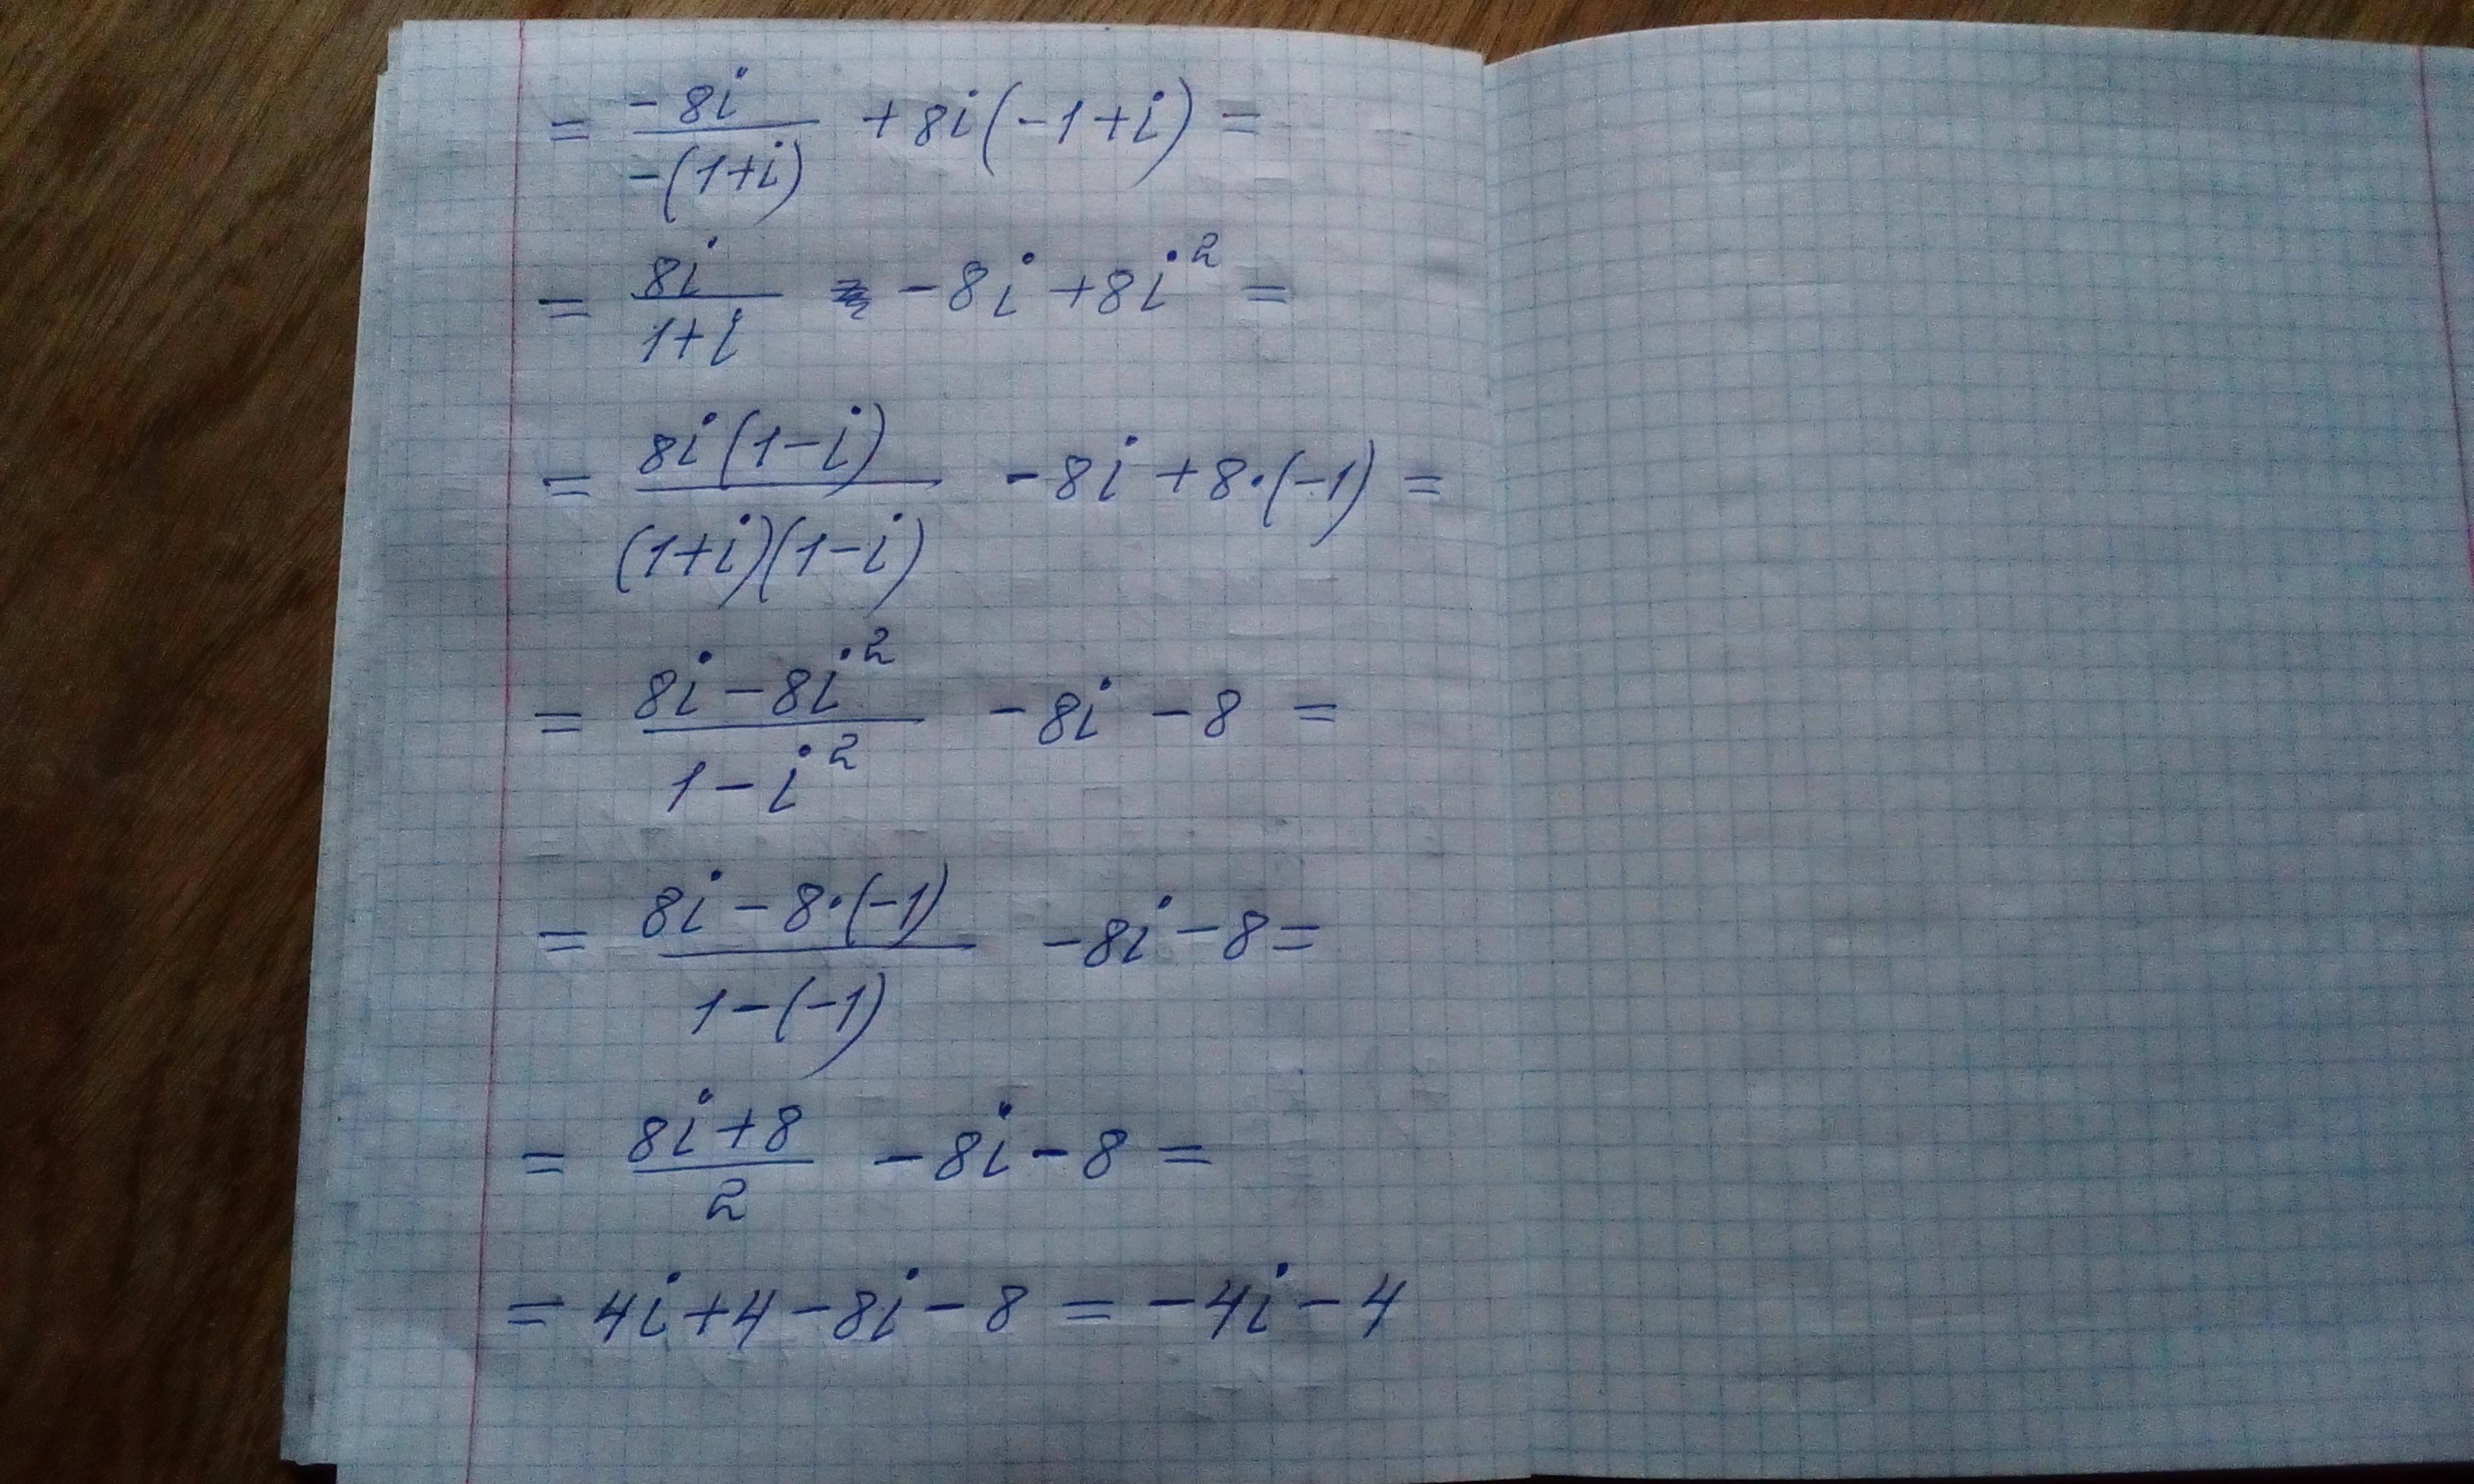 = -8i / -(1+i) + 8i(-1+i) =
= 8i / 1+i - 8i + 8i² =
= 8i(1-i) / (1+i)(1-i) - 8i + 8·(-1) =
= 8i - 8i² / 1 - i² - 8i - 8 =
= 8i - 8·(-1) / 1 - (-1) - 8i - 8 =
= 8i + 8 / 2 - 8i - 8 =
= 4i + 4 - 8i - 8 = -4i - 4